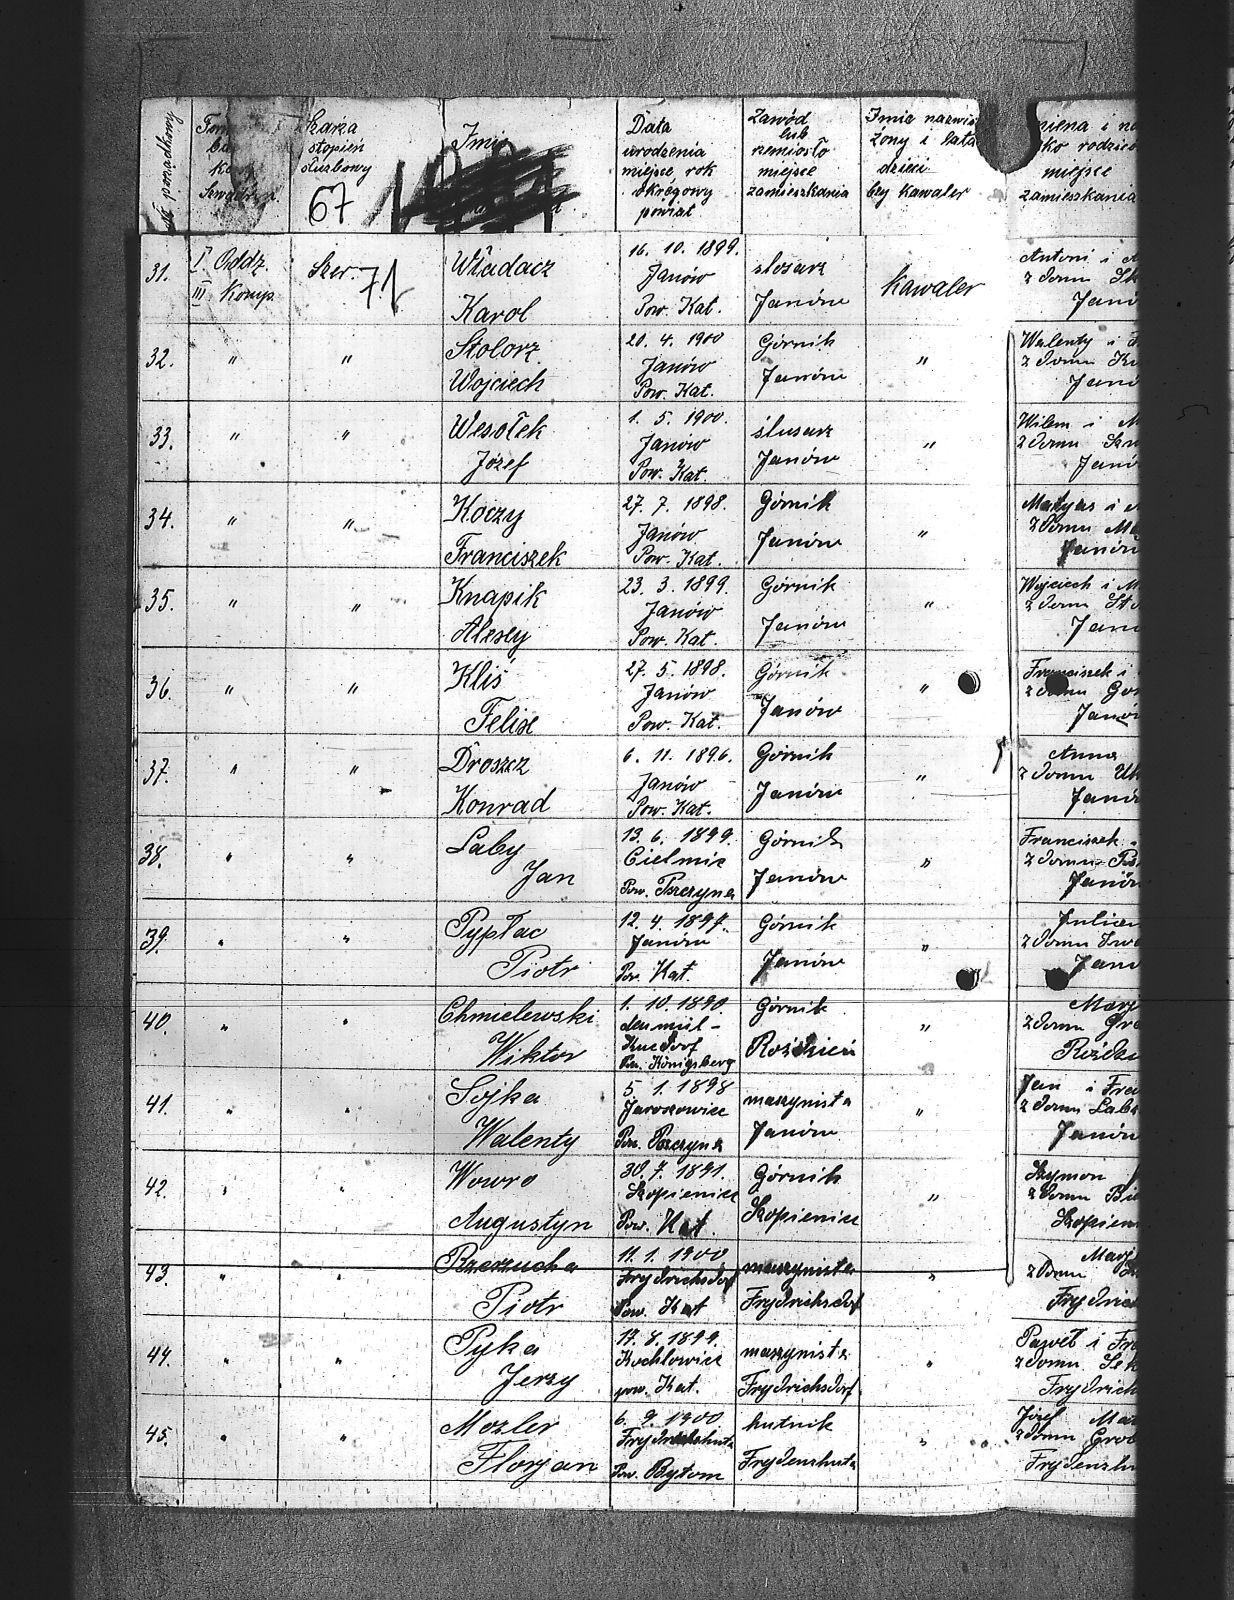 porządkowy
Szarża
stopień
służbowy
67
Imię
Data
urodzenia
miejsce, rok
okręgowy
powiat
Zawód
lub
rzemiosło
miejsce
zamieszkania
Imię nazwis
żony i lata
dzieci
bez kawaler
miejsce
zamieszkania
31. I Oddz. Szer. 71 Władacz 16. 10. 1899. ślosarz kawaler Antoni i
III Komp. Janów z domu
Karol Pow. Kat. Janów Janó
32. " " Stolorz 20. 4. 1900 Górnik " Walenty i
Janów z domu
Wojciech Pow. Kat. Janów Janó
33. " " Wesołek 1. 5. 1900. ślusarz " Wilem i M
Janów z domu
Józef Pow. Kat. Janów Janó
34. " " Koczy 27. 7. 1898. Górnik " Matyas i
Janów z domu
Franciszek Pow. Kat. Janów Janów
35. " " Knapik 23. 3. 1899. Górnik " Wojciech i M
Janów z domu
Alexy Pow. Kat. Janów Jan
36. " " Kliś 27. 5. 1898. Górnik " Franciszek i
Janów z domu
Felix Pow. Kat. Janów Janó
37. " " Droszcz 6. 11. 1896. Górnik " Anna
Janów z domu
Konrad Pow. Kat. Janów Janó
38. " " Laby 13. 6. 1899. Górnik " Franciszek
Cielmic z domu
Jan Pow. Pszczyna Janów Janów
39. " " Pyptac 12. 4. 1897. Górnik " Julian
Janów z domu
Piotr Pow. Kat. Janów Jan
40. " " Chmielewski 1. 10. 1890. Górnik " Mary
z domu
Wiktor Pow. Königsberg Roździeń Roździ
41. " " Sojka 5. 1. 1898 maszynista " Jan i Fra
Jaroszowice z domu
Walenty Pow. Pszczyna Janów Janów
42. " " Wowro 30. 7. 1891. Górnik " Szymon
Szopienice z domu
Augustyn Pow. Kat. Szopienice Szopien
43. " " Rzerzucha 11. 1. 1900 maszynista " Mary
Frydrichsdorf z domu
Piotr Pow. Kat Frydrichsdorf Frydric
44. " " Pyka 17. 8. 1899. maszynista " Paweł i Fr
Kochłowice z domu
Jerzy pow. Kat. Frydrichsdorf Frydrich
45. " " Mozler 6. 9. 1900 hutnik " Józef Ma
z domu
Florjan Pow. Bytom Frydenshuta Frydenshu